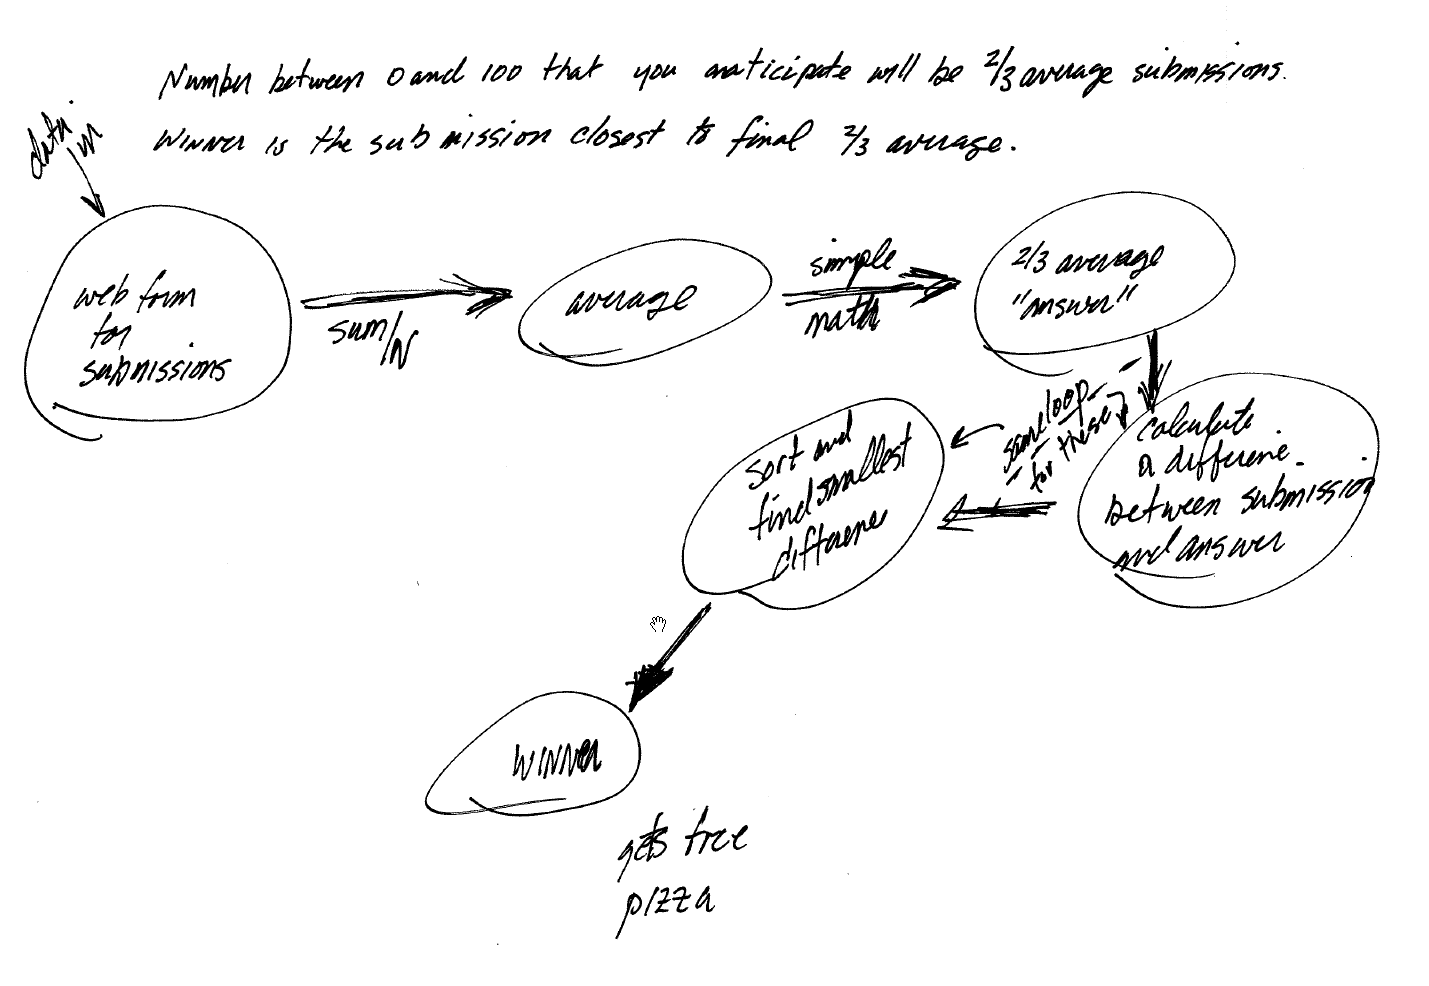 Number between 0 and 100 that you anticipate will be 2/3 average submissions.
Winner is the submission closest to final 2/3 average.
data
in
web form
for
submissions
sum/N
average
simple
math
2/3 average
"answer"
same loop
for these
calculate
a difference
between submission
and answer
sort and
find smallest
difference
WINNER
gets free
pizza